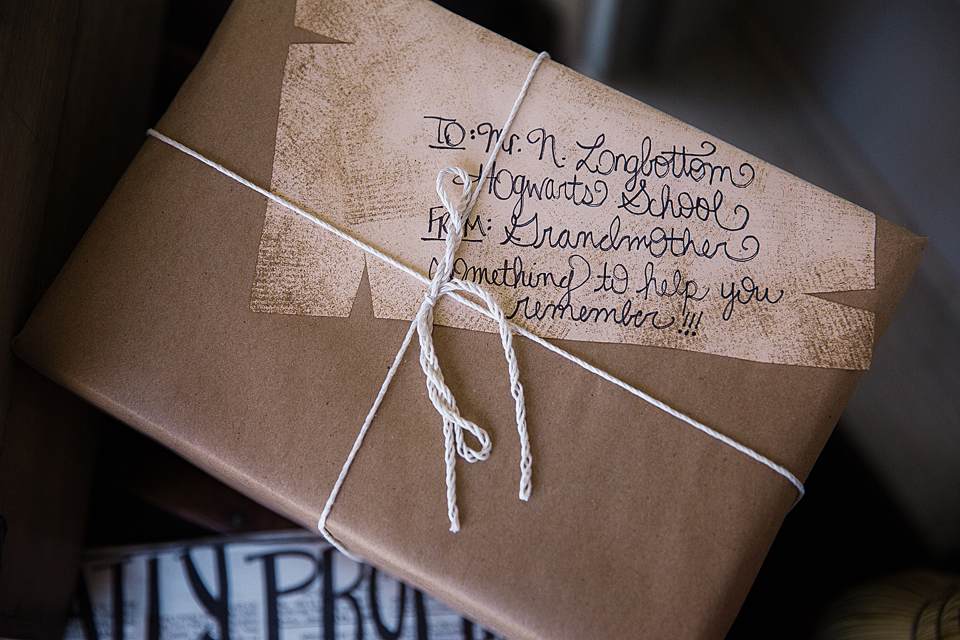 TO: Mr. N. Longbottom
Hogwarts School
FROM: Grandmother
Something to help you
remember!!!
AILY PRO